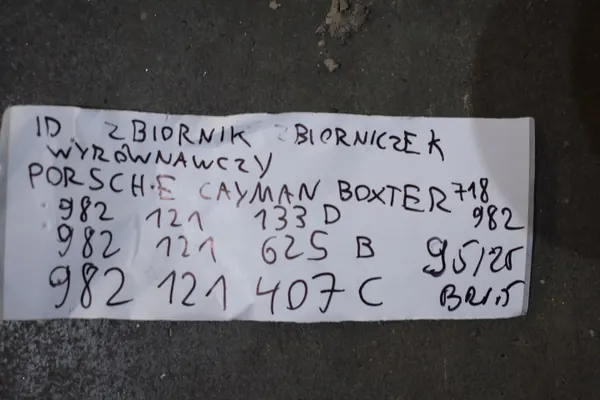 ID. ZBIORNIK ZBIORNICZEK
WYRÓWNAWCZY
PORSCHE CAYMAN BOXTER 718
982 121 133 D 982
982 121 625 B 95/25
982 121 407 C